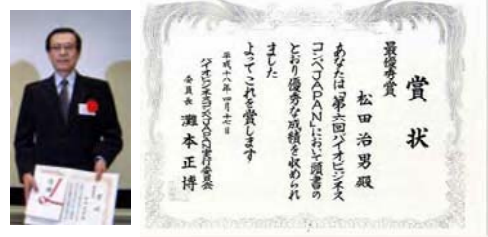 賞状
最優秀賞
松田治男殿
あなたは「第六回バイオビジネス
コンペJAPAN」において頭書の
とおり優秀な成績を収められ
ました
よってこれを賞します
平成十八年四月十七日
バイオビジネスコンペJAPAN実行委員会
委員長 灘本正博